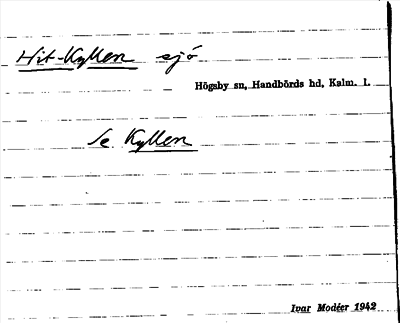 Hit-Kyllen sjö
Högsby sn, Handbörds hd, Kalm. l.
Se Kyllen
Ivar Modéer 1942